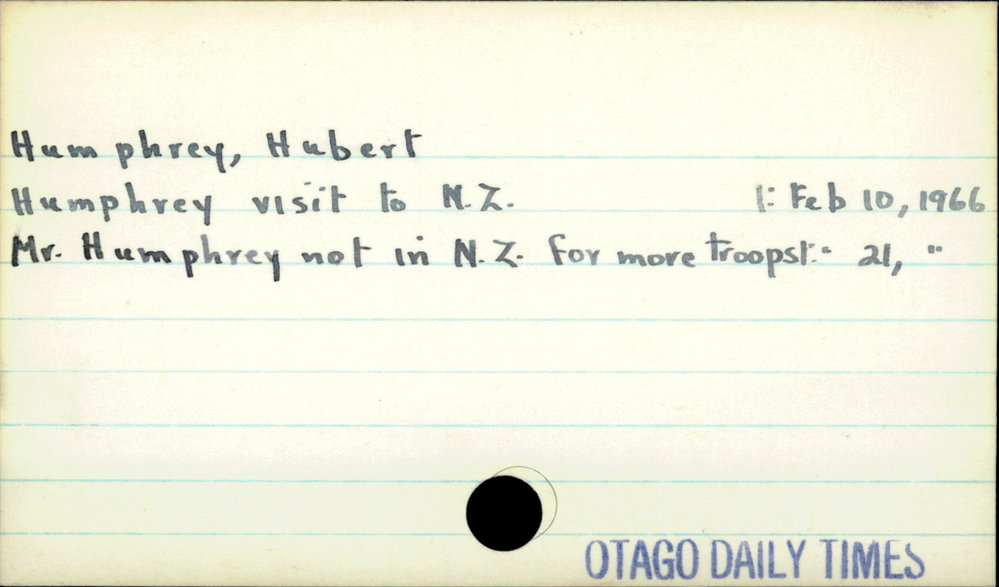 Humphrey, Hubert
Humphrey visit to N.Z. 1: Feb 10, 1966
Mr. Humphrey not in N.Z. for more troops 1: " 21, "
OTAGO DAILY TIMES